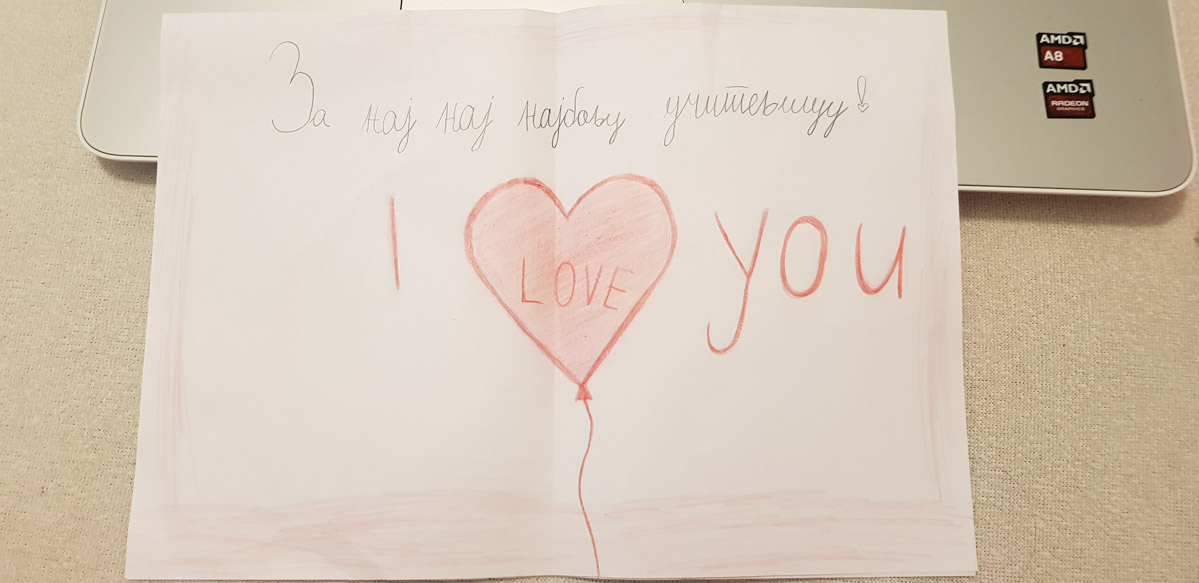 За нај нај најбољу учитељицу!
I LOVE you
AMD
A8
AMD
RADEON
GRAPHICS